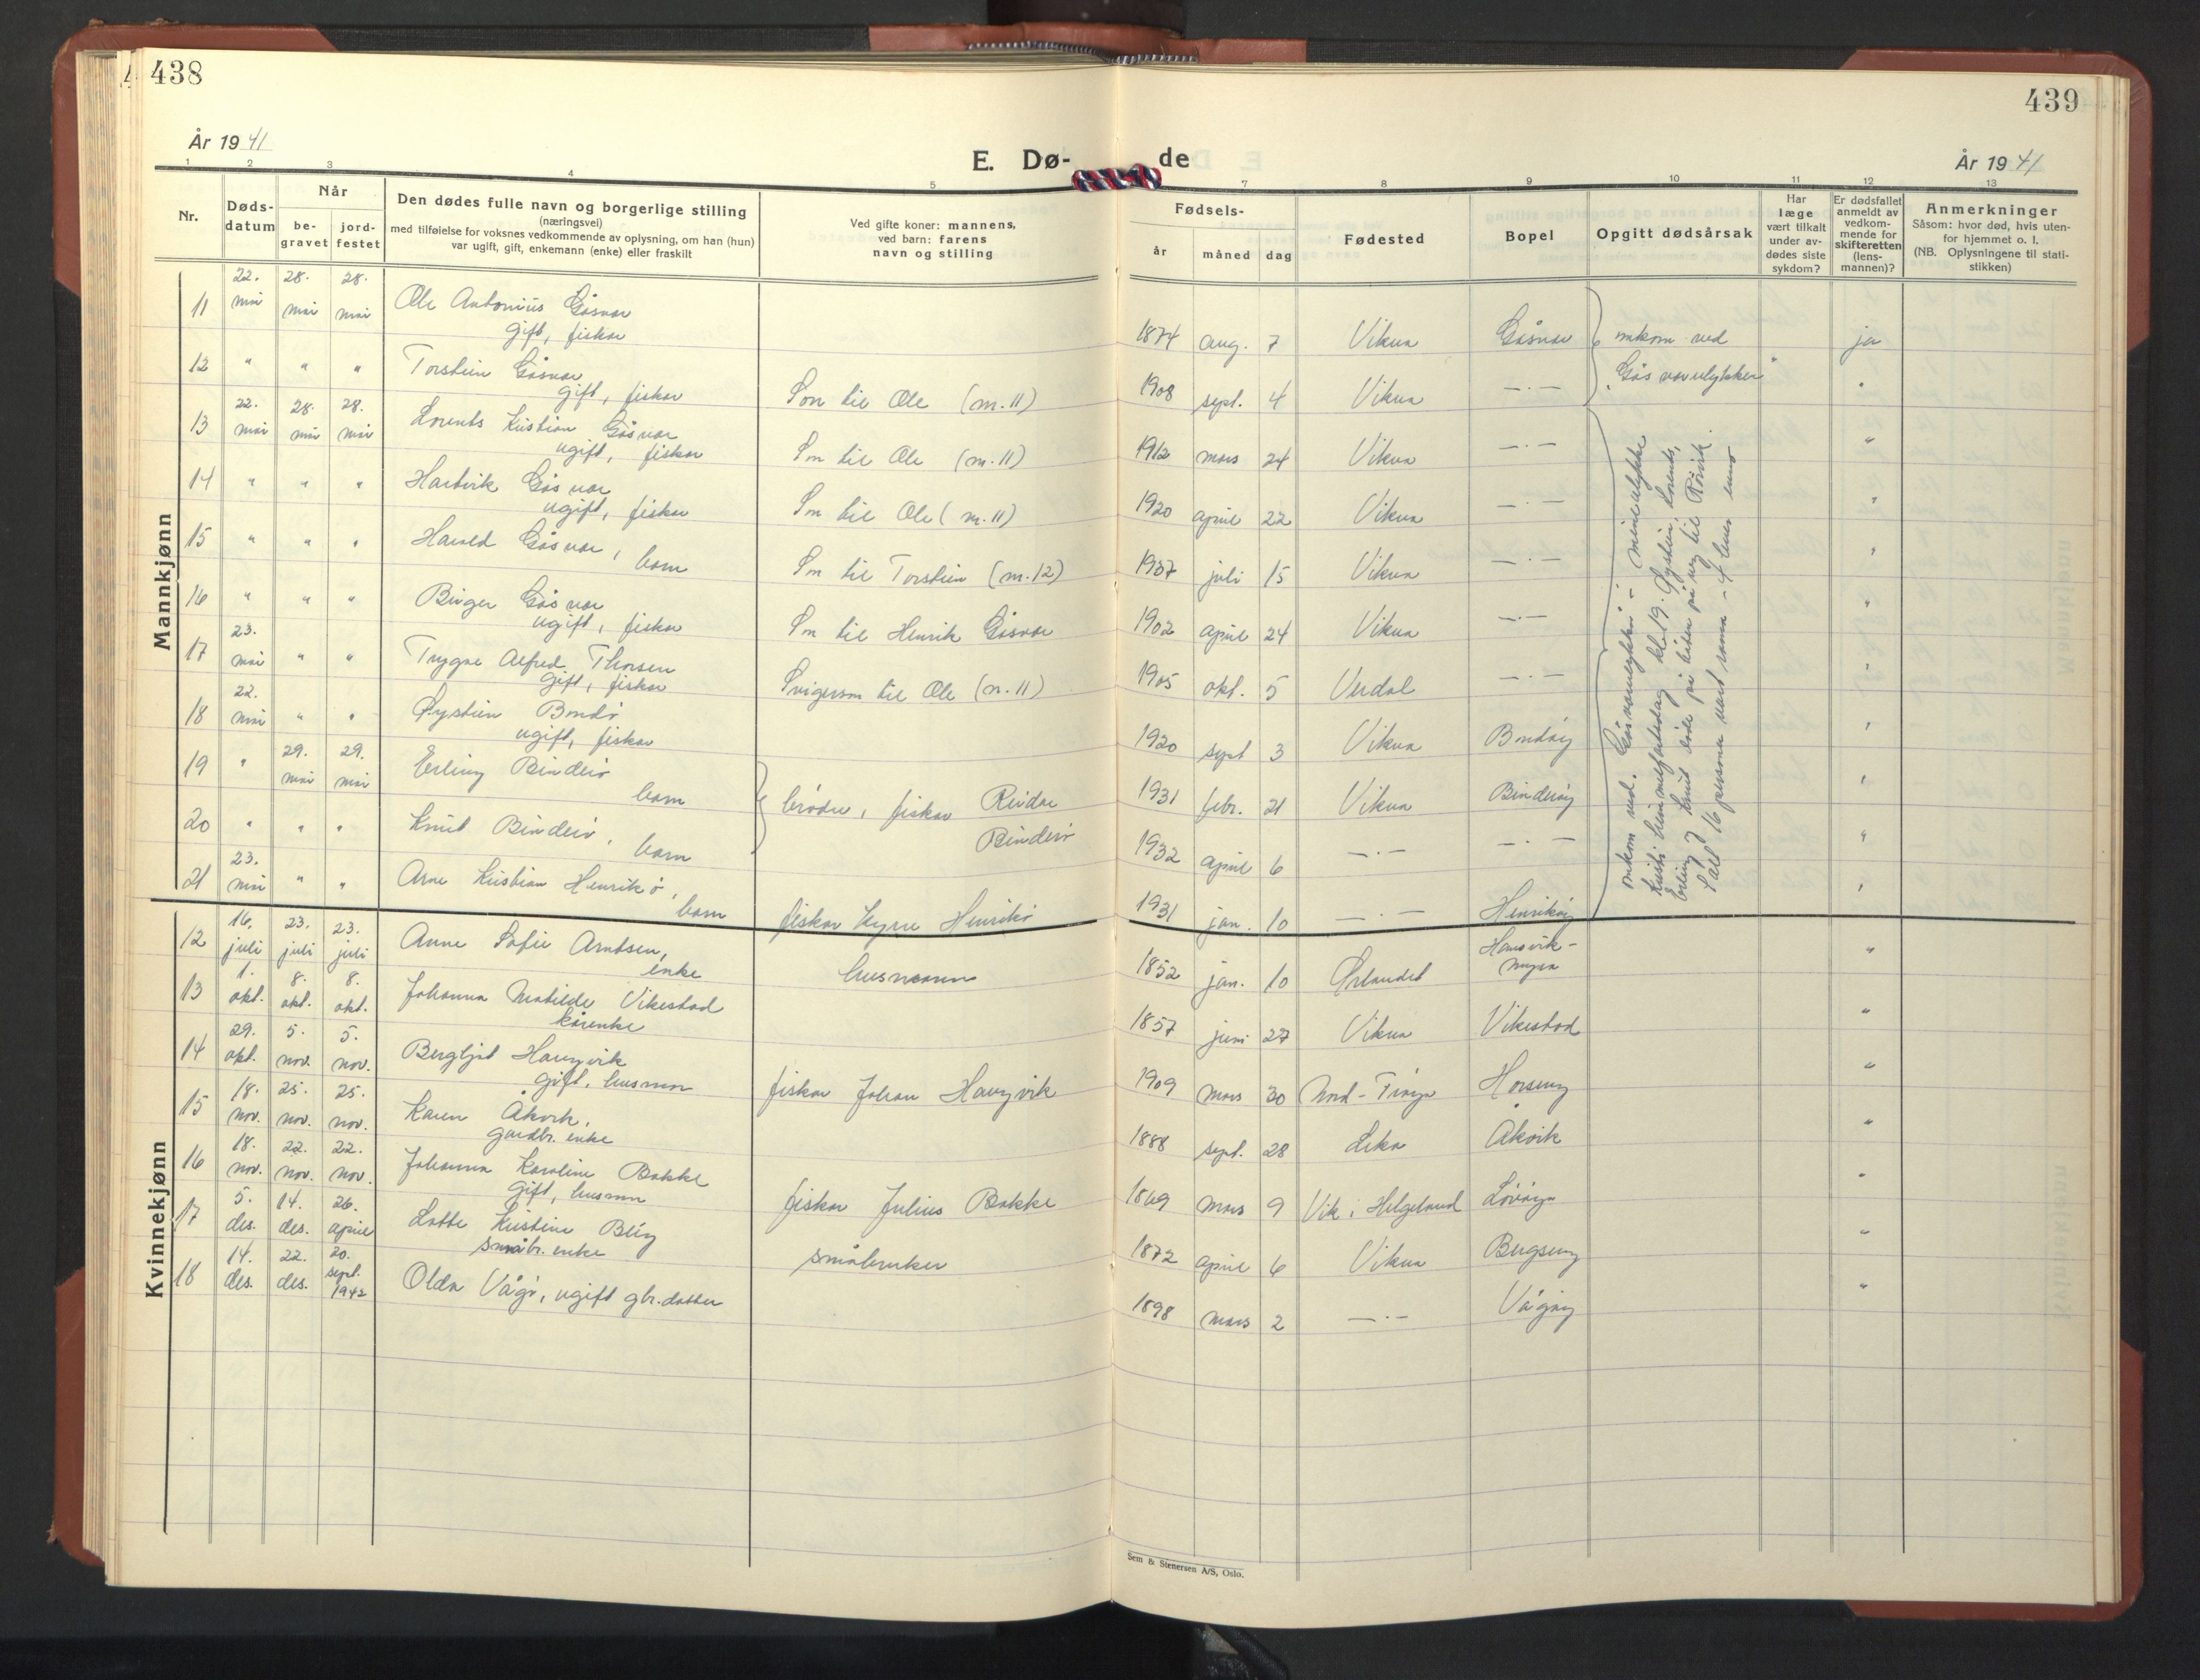 438
439
År 1941
E. Dø-
de
År 1941
1 2 3 4 5 7 8 9 10 11 12 13
Nr.
Døds-
datum
Når
be-
gravet
jord-
festet
Den dødes fulle navn og borgerlige stilling
(næringsvei)
med tilføielse for voksnes vedkommende av oplysning, om han (hun)
var ugift, gift, enkemann (enke) eller fraskilt
Ved gifte koner: mannens,
ved barn: farens
navn og stilling
Fødsels-
år måned dag
Fødested
Bopel
Opgitt dødsårsak
Har
læge
vært tilkalt
under av-
dødes siste
sykdom?
Er dødsfallet
anmeldt av
vedkom-
mende for
skifteretten
(lens-
mannen)?
Anmerkninger
Såsom: hvor død, hvis uten-
for hjemmet o. l.
(NB. Oplysningene til stati-
stikken)
Mannkjønn
11 22. mai 28. mai 28. mai Ole Antonius Gåsvær
gift, fisker 1874 aug. 7 Vikna Gåsvær omkom ved ja
12 " " " Torstein Gåsvær
gift, fisker Søn til Ole (m. 11) 1908 sept. 4 Vikna —·— "Gåsværulykken" "
13 22. mai 28. mai 28. mai Lorents Kristian Gåsvær
ugift, fisker Søn til Ole (m. 11) 1912 mars 24 Vikna —·— "
14 " " " Hartvik Gåsvær
ugift, fisker Søn til Ole (m. 11) 1920 april 22 Vikna —·— "
15 " " " Harald Gåsvær,
barn Søn til Torstein (m. 12) 1937 juli 15 Vikna —·— "
16 " " " Birger Gåsvær
ugift, fisker Søn til Henrik Gåsvær 1902 april 24 Vikna —·— "
17 23. mai " " Trygve Alfred Thorsen
gift, fisker Svigersøn til Ole (m. 11) 1905 okt. 5 Verdal —·— "
18 22. mai " " Øystein Bondø
ugift, fisker 1920 sept 3 Vikna Bondøy "
19 " 29. mai 29. mai Erling Binderø
barn brødre, fisker Reidar 1931 febr. 21 Vikna Binderøy "
20 " " " Knut Binderø,
barn Binderø 1932 april 6 —·— —·— "
21 23. mai " " Arne Kristian Henrikø,
barn fisker Henrikø 1931 jan. 10 —·— Henrikøy "
omkom ved Gåsværulykken – mineulykke
Kristi himmelfartsdag kl. 19. Øystein, Lorents,
Erling og Knut døde på båten på veg til Rørvik.
I alt 16 personer
Kvinnekjønn
12 16. juli 23. juli 23. juli Anne Sofie Arntsen,
enke husmann 1852 jan. 10 Ørlandet Hansvik-
myra "
13 1. okt. 8. okt. 8. okt. Johanna Matilde Vikestad
kårenke 1857 juni 27 Vikna Vikestad "
14 29. okt. 5. nov. 5. nov. Bergljot Haugvik
gift, husmor fisker Johan Haugvik 1909 mars 30 Nord-Frøya Horseng "
15 18. nov. 25. nov. 25. nov. Karen Åkvik,
gårdbr. enke 1888 sept. 28 Leka Åkvik "
16 18. nov. 22. nov. 22. nov. Johanna Karoline Bakke
gift, husmor fisker Julius Bakke 1869 mars 9 Vik i Helgeland Løvøya "
17 5. des. 14. des. 26. april Lotte Kristine Berg
småbr. enke småbruker 1872 april 6 Vikna Bergseng "
18 14. des. 22. des. 20. sept. 1942 Olda Vågø, ugift gbr. datter 1898 mars 2 —·— Vågøy "
Sem & Stenersen A/S, Oslo.